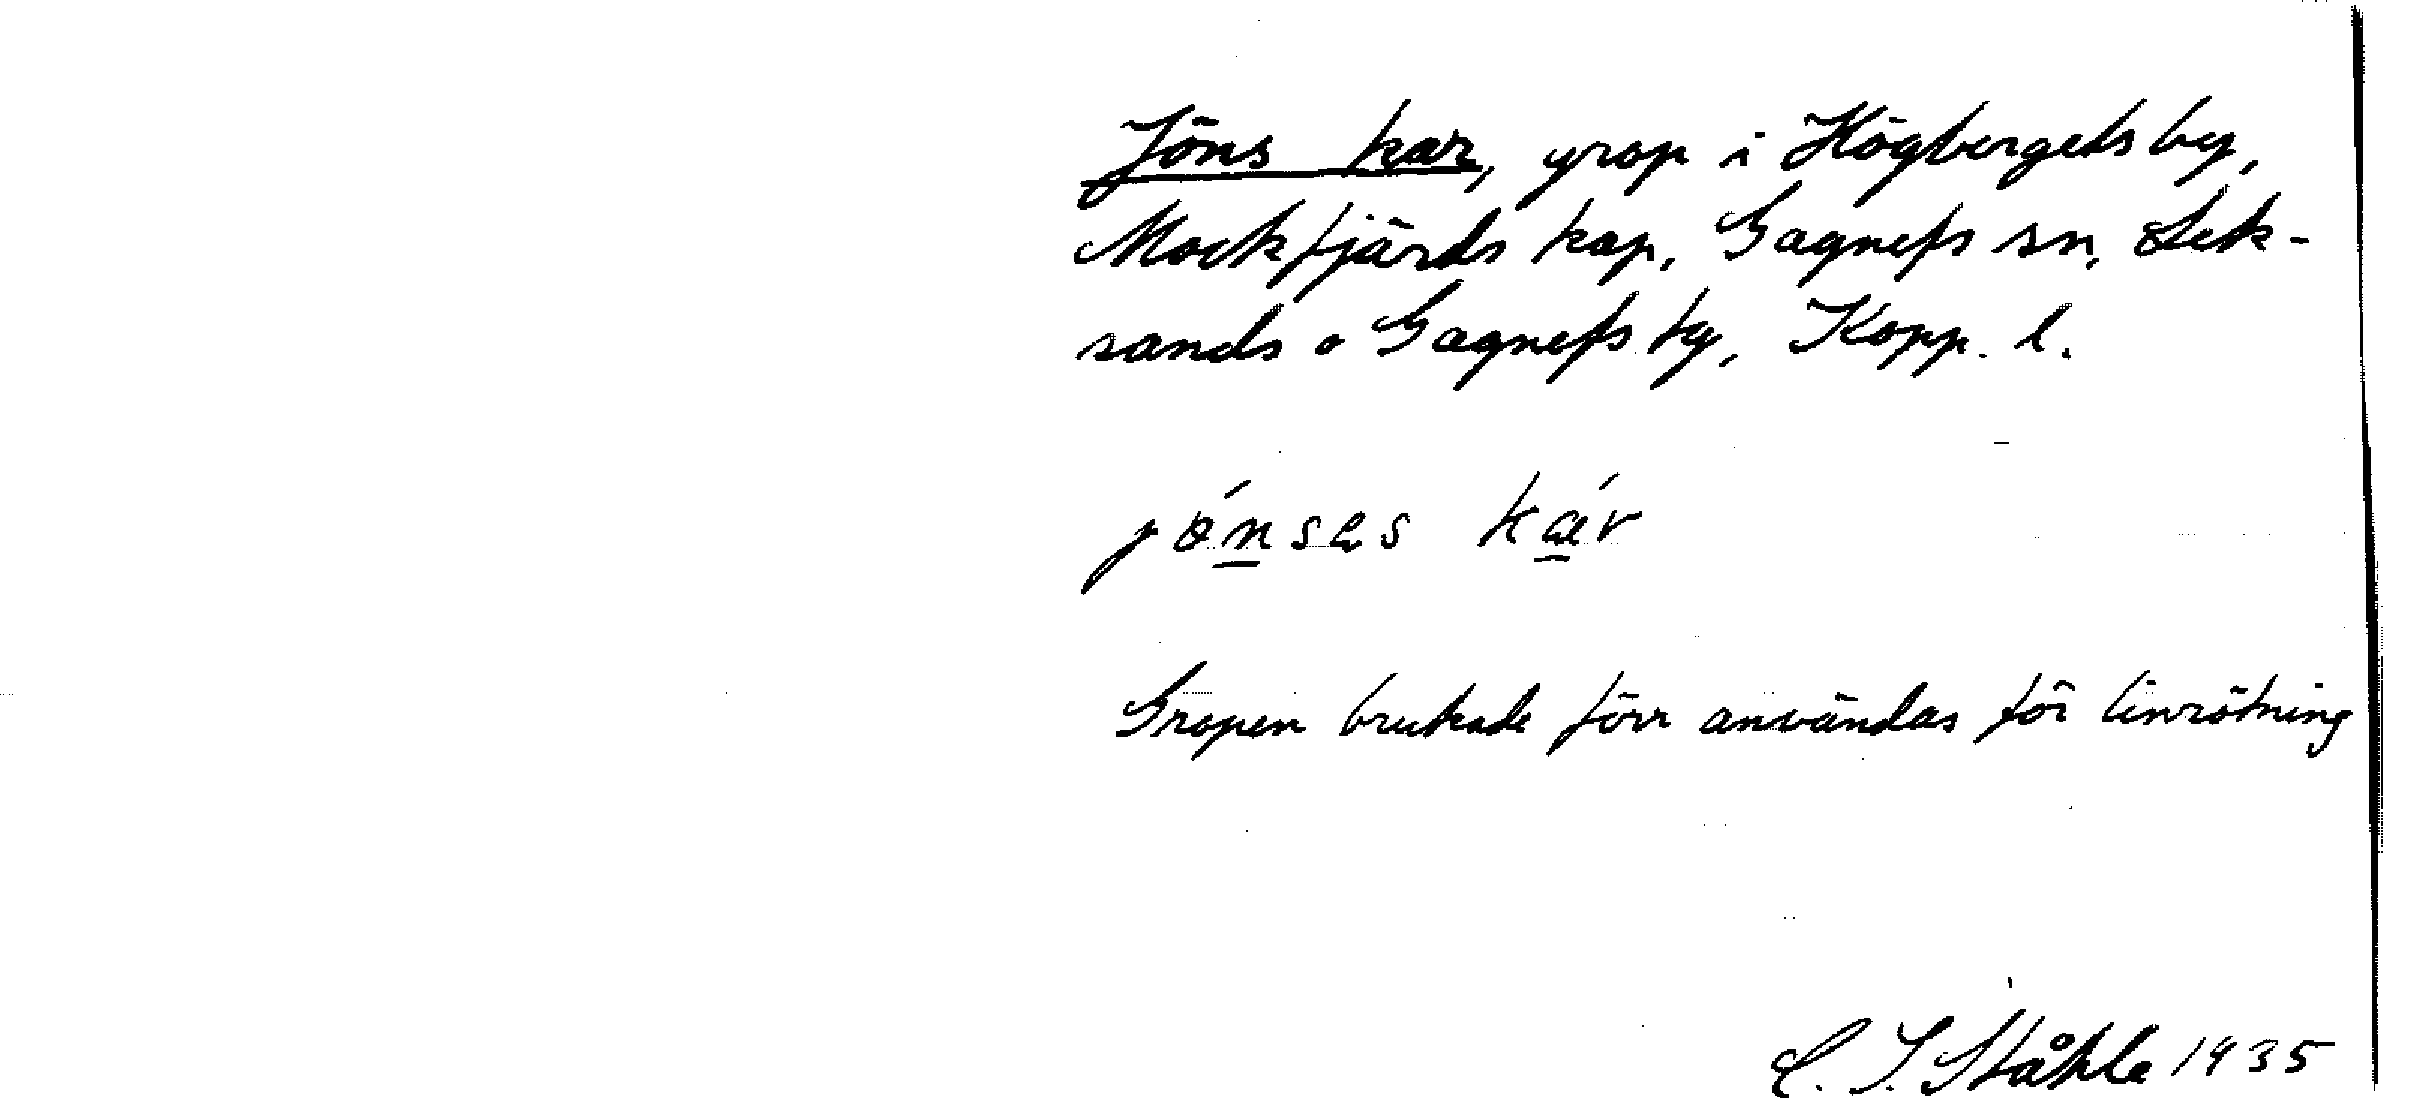 Jöns kar, grop i Högbergets by,
Mockfjärds kap, Gagnefs sn, Lek-
sands o Gagnefs tg, Kopp. l.
jǿnsɛs kǽr
Gropen brukade förr användas för linrötning
C. I. Ståhle 1935